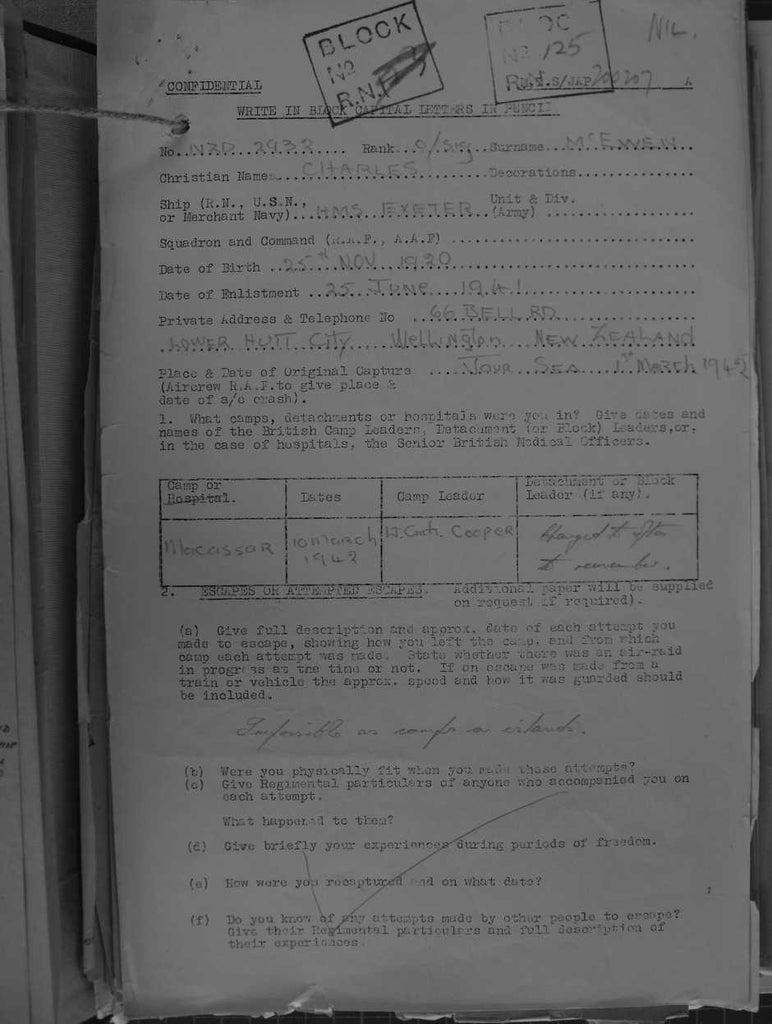 BLOCK
No
R.N.
BLOC
No 125
R.N.
NIL.
CONFIDENTIAL
S/JAP/200207 A
WRITE IN BLOCK CAPITAL LETTERS IN PENCIL
No. NZD 2932 .... Rank.. O/Sig.. Surname... McEWEN
Christian Names... CHARLES ... Decorations...............
Ship (R.N., U.S.N., Unit & Div.
or Merchant Navy)... HMS. EXETER (Army) ....................
Squadron and Command (R.A.F., A.A.F) ..............................
Date of Birth .. 25th NOV 1920 ..............................
Date of Enlistment .. 25 June 1941 ....................
Private Address & Telephone No 66 BELL RD.
LOWER HUTT CITY. Wellington NEW ZEALAND
Place & Date of Original Capture .... Java Sea 1st March 1942
(Aircrew R.A.F. to give place &
date of a/c crash).
1. What camps, detachments or hospitals were you in? Give dates and
names of the British Camp Leaders, Detachment (or Block) Leaders, or,
in the case of hospitals, the Senior British Medical Officers.
Camp or Hospital. Dates Camp Leader Detachment or Block Leader (if any).
Macassar 10 March 1942 Lt. Cooper Changed to often to remember.
2. ESCAPES OR ATTEMPTED ESCAPES. Additional paper will be supplied
on request if required).
(a) Give full description and approx. date of each attempt you
made to escape, showing how you left the camp, and from which
camp each attempt was made. State whether there was an air-raid
in progress at the time or not. If an escape was made from a
train or vehicle the approx. speed and how it was guarded should
be included.
Impossible as camps on islands.
(b) Were you physically fit when you made these attempts?
(c) Give Regimental particulars of anyone who accompanied you on
each attempt.
What happened to them?
(d) Give briefly your experiences during periods of freedom.
(e) How were you recaptured and on what date?
(f) Do you know of any attempts made by other people to escape?
Give their Regimental particulars and full description of
their experiences.